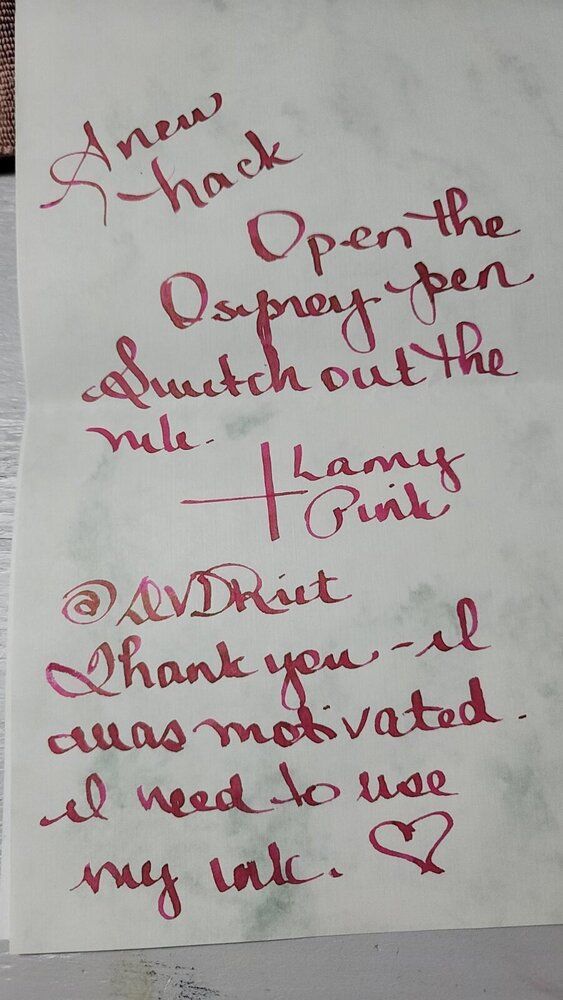 A new
hack
Open the
Osprey pen
Switch out the
nib.
+ Lamy
Pink
Thank you - I
was motivated.
I need to use
my ink. ♡